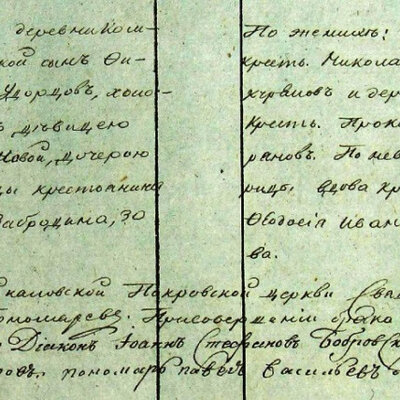 деревни Ком-
кой сынъ Ѳи-
Удорцовъ, холо-
дѣвицею
Новой, дочерью
крестьянина
Забродина, 30
По женихѣ:
крест. Никола
и дер
Крест. Проко
рановъ. По нев
вдова кр
Ѳеодосія Иван
ва.
Покровской церкви
Пономаревъ. При совершеніи брака
Діаконъ Іоаннъ Стефановъ Бобровск
пономарь Павелъ Васильевъ